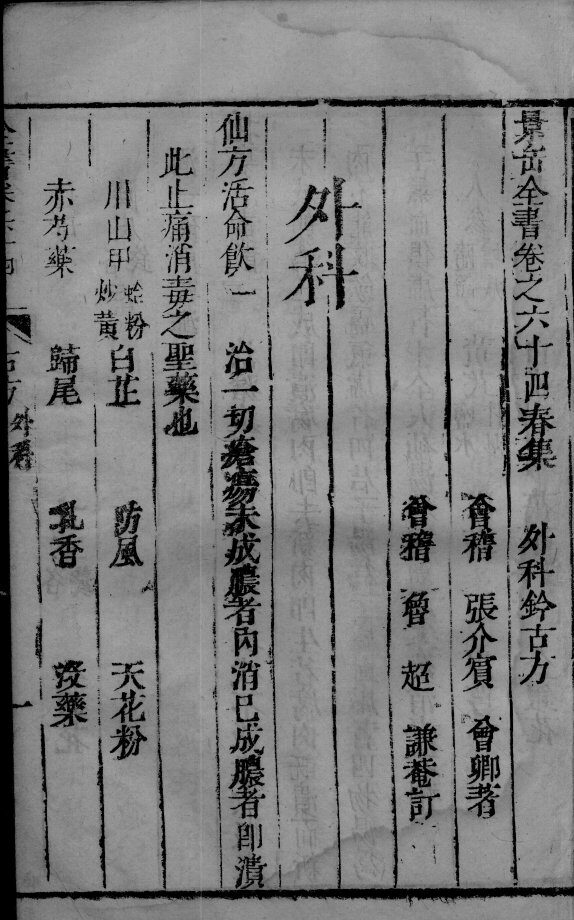 景岳全書卷之六十四春集 外科鈐古方
會稽 張介賓 會卿著
會稽 魯超 謙菴訂
外科
仙方活命飲一 治一切瘡瘍未成膿者內消已成膿者卽潰
此止痛消毒之聖藥也
川山甲 蛤粉炒黃 白芷 防風 天花粉
赤芍藥 歸尾 乳香 沒藥
古方 外科 一